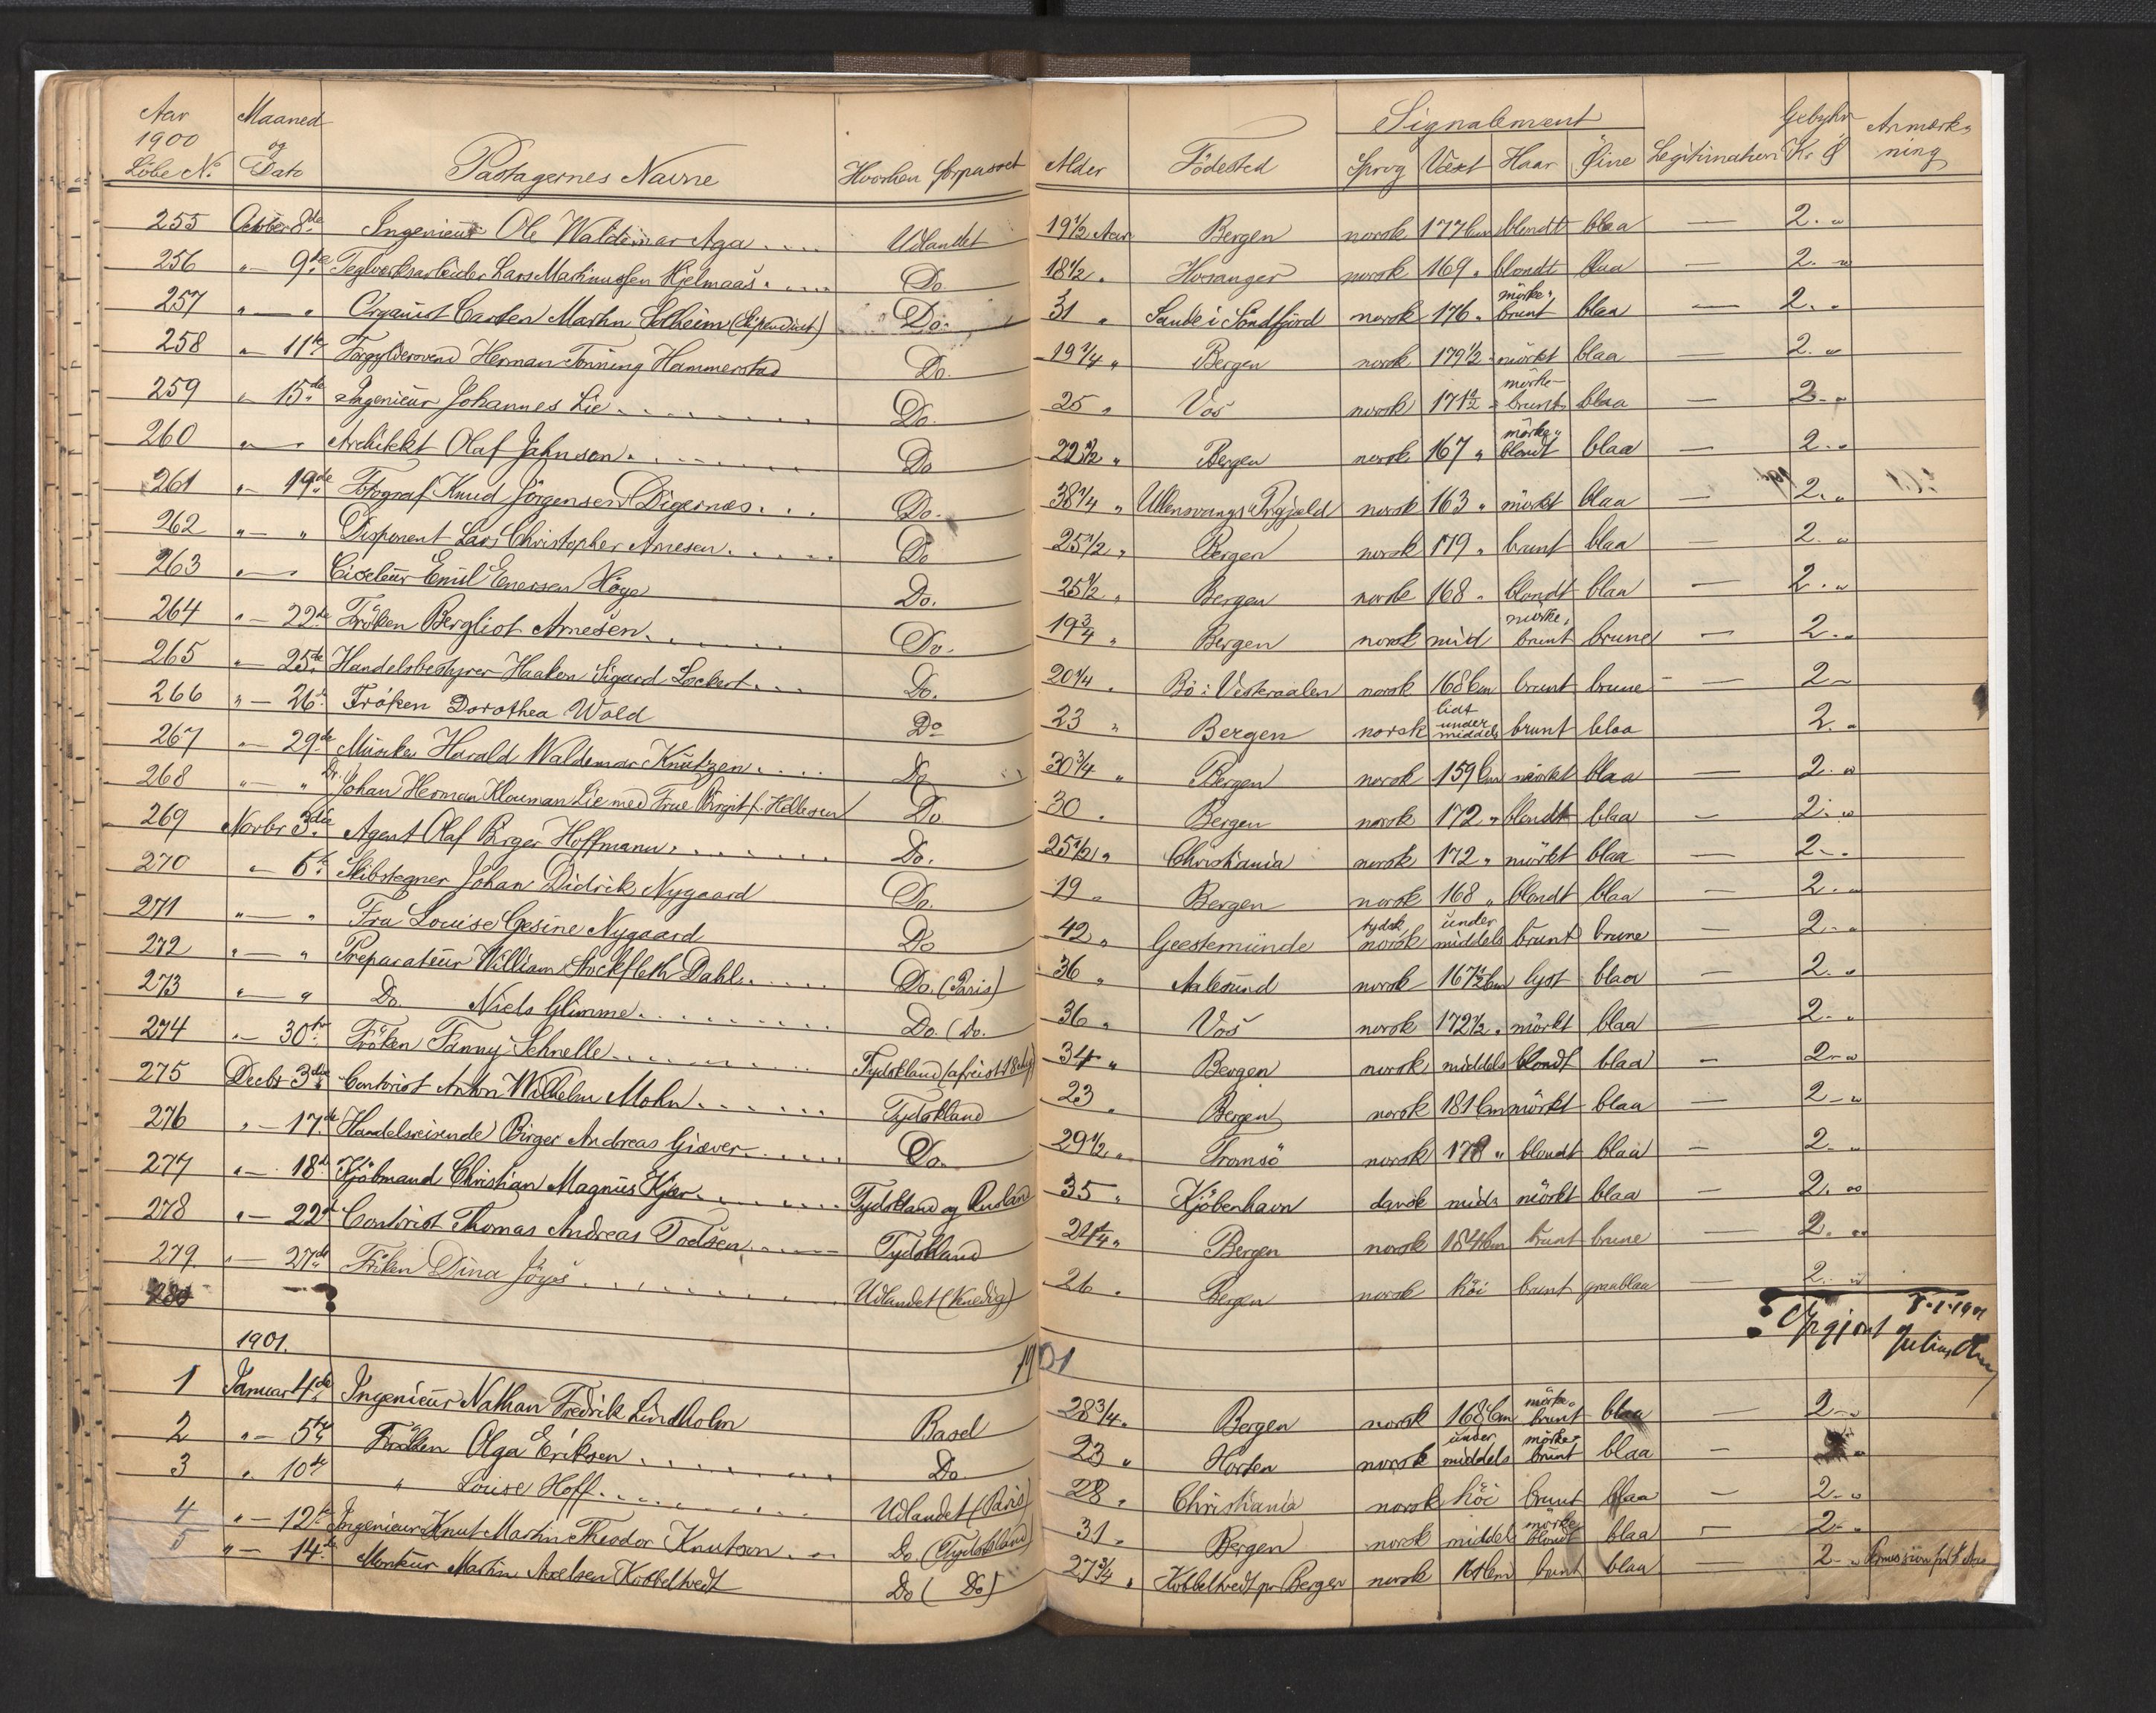 Aar 1900 Löbe No. Maaned og Dato Passagernes Navne Hvorhen forpasset Alder Födested Signalement Sprog Væxt Haar Öine Legitimation Gebyhr Kr Ö Anmærkning
255 October 8de Ingeniør Ole Waldemar Aga Udlandet 19 1/2 Aar Bergen norsk 177 Cm blondt blaa — 2. "
256 " — 9de Teglverksarbeider Lars Martinussen Hjelmaas Do 18 1/2 " Hosanger norsk 169 " blondt blaa — 2. "
257 " — " Organist Carsten Martin Solheim (Stipendiat) Do. 31 " Sande i Söndfjord norsk 176 " mörkebrunt blaa — 2. "
258 " — 11te Herman Tonning Hammerstad Do. 19 3/4 " Bergen norsk 179 1/2 " mörkt blaa — 2. "
259 " — 15de Ingenieur Johannes Lie Do. 25 " Vos norsk 171 1/2 " mörke-brunt blaa — 2 - "
260 " — " Architekt Olaf Jahnsen Do 22 1/2 " Bergen norsk 167 " mörkeblondt blaa — 2. "
261 " — 19de Fotograf Knud Jörgensen Digernes Do. 38 1/4 " Ullensvangs Prgjæld norsk 163 " mörkt blaa — 2. "
262 " — " Disponent Lars Christopher Arnesen Do 25 1/2 " Bergen norsk 179 " brunt blaa — 2. "
263 " — " Ciseleur Emil Enersen Höye Do. 25 1/2 " Bergen norsk 168 " blondt blaa — 2. "
264 " — 22de Fröken Bergliot Arnesen Do. 19 3/4 " Bergen norsk mid mörkebrunt brune — 2. "
265 " — 25de Handelsbestyrer Haakon Sigurd Lockert Do. 20 1/4 " Bö i Vesteraalen norsk 168 Cm brunt brune — 2 -
266 " — 26de Fröken Dorothea Wold Do 23 " Bergen norsk lidt under middels brunt blaa 2. "
267 " — 29de Musiker Harald Waldemar Knützen Do 30 3/4 " Bergen norsk 159 Cm mörkt blaa — 2. "
268 " — " Dr. Johan Herman Klouman Lie med Frue Birgit f. Hellesen Do 30 " Bergen norsk 172 " blondt blaa — 2. "
269 Novbr 3die Agent Olaf Birger Hoffmann Do. 25 1/2 " Christiania norsk 172 " mörkt blaa — 2. "
270 " — 6te Skibstegner Johan Didrik Nygaard Do. 19 " Bergen norsk 168 " blondt blaa — 2. "
271 " — " Fru Louise Gesine Nygaard Do 42 " Geestemünde tydsk, norsk under middels brunt brune — 2. "
272 " — " Preparateur William Stockfleth Dahl Do. (Paris) 36 " Aalesund norsk 167 1/2 Cm lyst blaa — 2. "
273 " — " Do Niels Glimme Do. (Do. 36 " Vos norsk 172 1/2 " mörkt blaa — 2. "
274 " — 30te Fröken Fanny Schnelle Tydskland 34 " Bergen norsk middels blondt blaa — 2 - "
275 Decbr 3die Contorist Anton Wilhelm Mohn Tydskland 23 " Bergen norsk 181 Cm mörkt blaa — 2 - "
276 " — 17de Handelsreisende Birger Andreas Giæver Do. 29 1/2 " Tromsö norsk 178 " blondt blaa — 2 - "
277 " — 18de Kjöbmand Christian Magnus Kjær Tydskland og Rusland 35 " Kjöbenhavn dansk mid. mörkt blaa — 2. "
278 " — 22de Contorist Thomas Andreas Todsen Tydskland 24 1/4 " Bergen norsk 184 Cm brunt brune — 2. "
279 " — 27de Fröken Dina Udlandet 26 " Bergen norsk höi brunt graablaa — 2. "
280 Opgjort 8-1-1901
1901. 1901
1 Januar 4de Ingeniör Nathan Fredrik Lindholm Basel 28 3/4 " Bergen norsk 168 Cm mörkebrunt blaa — 2 - "
2 " — 5te Fröken Olga Eriksen Do. 23 " Horten norsk under middels mörkebrunt blaa —
3 " 10de " Louise Hoff Udlandet (Paris) 28 " Christiania norsk höi brunt blaa — 2 - "
4 " — 12te Ingeniör Knut Martin Theodor Knutson Do (Tydskland) 31 " Bergen norsk middels mörkeblondt blaa — 2 - "
5 " — 14de Montör Martin Axelsen Kobbeltvedt Do ( Do) 27 3/4 " Kobbeltvedt pr Bergen norsk brunt blaa — 2 - "